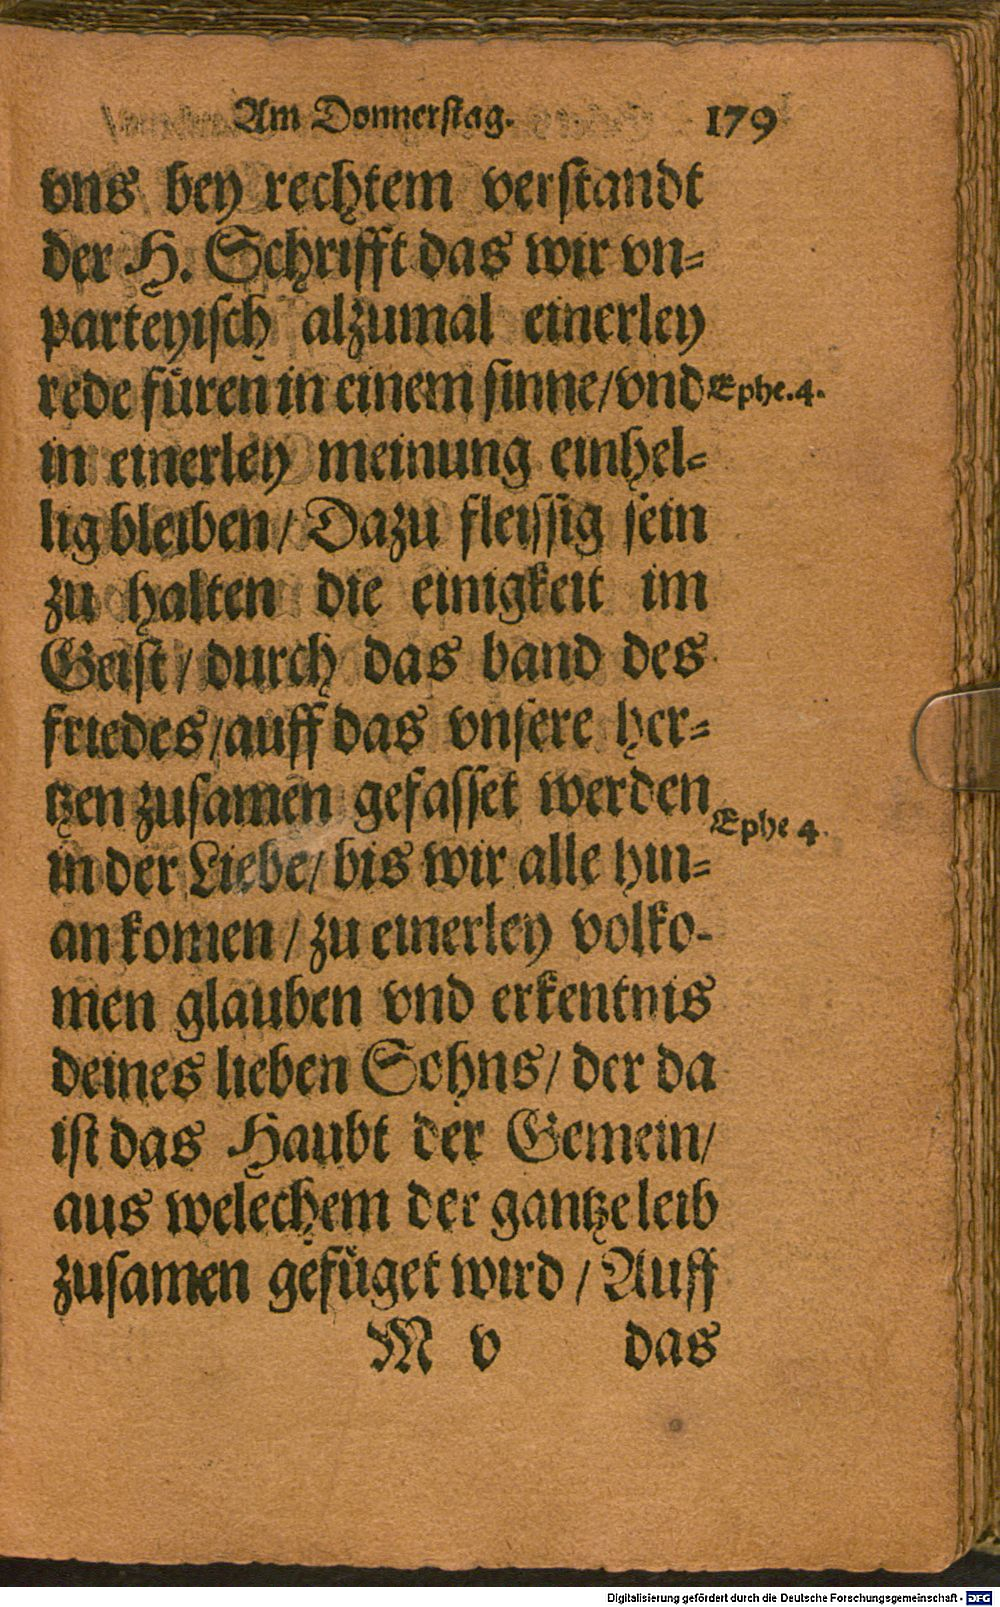 Am Donnerstag. 179
vns bey rechtem verstandt
der H. Schrifft das wir vn=
parteyisch alzumal einerley
rede füren in einem sinne/vnd Ephe.4.
in einerley meinung einhel=
lig bleiben/ Dazu fleissig sein
zu halten die einigkeit im
Geist/ durch das band des
friedes/auff das vnsere her=
tzen zusamen gefasset werden
Ephe 4.
in der Liebe/ bis wir alle hin=
an komen/ zu einerley volko-
men glauben vnd erkentnis
deines lieben Sohns/ der da
ist das Haubt der Gemein/
aus welechem der gantze leib
zusamen gefüget wird/ Auff
M v das
Digitalisierung gefördert durch die Deutsche Forschungsgemeinschaft - DFG